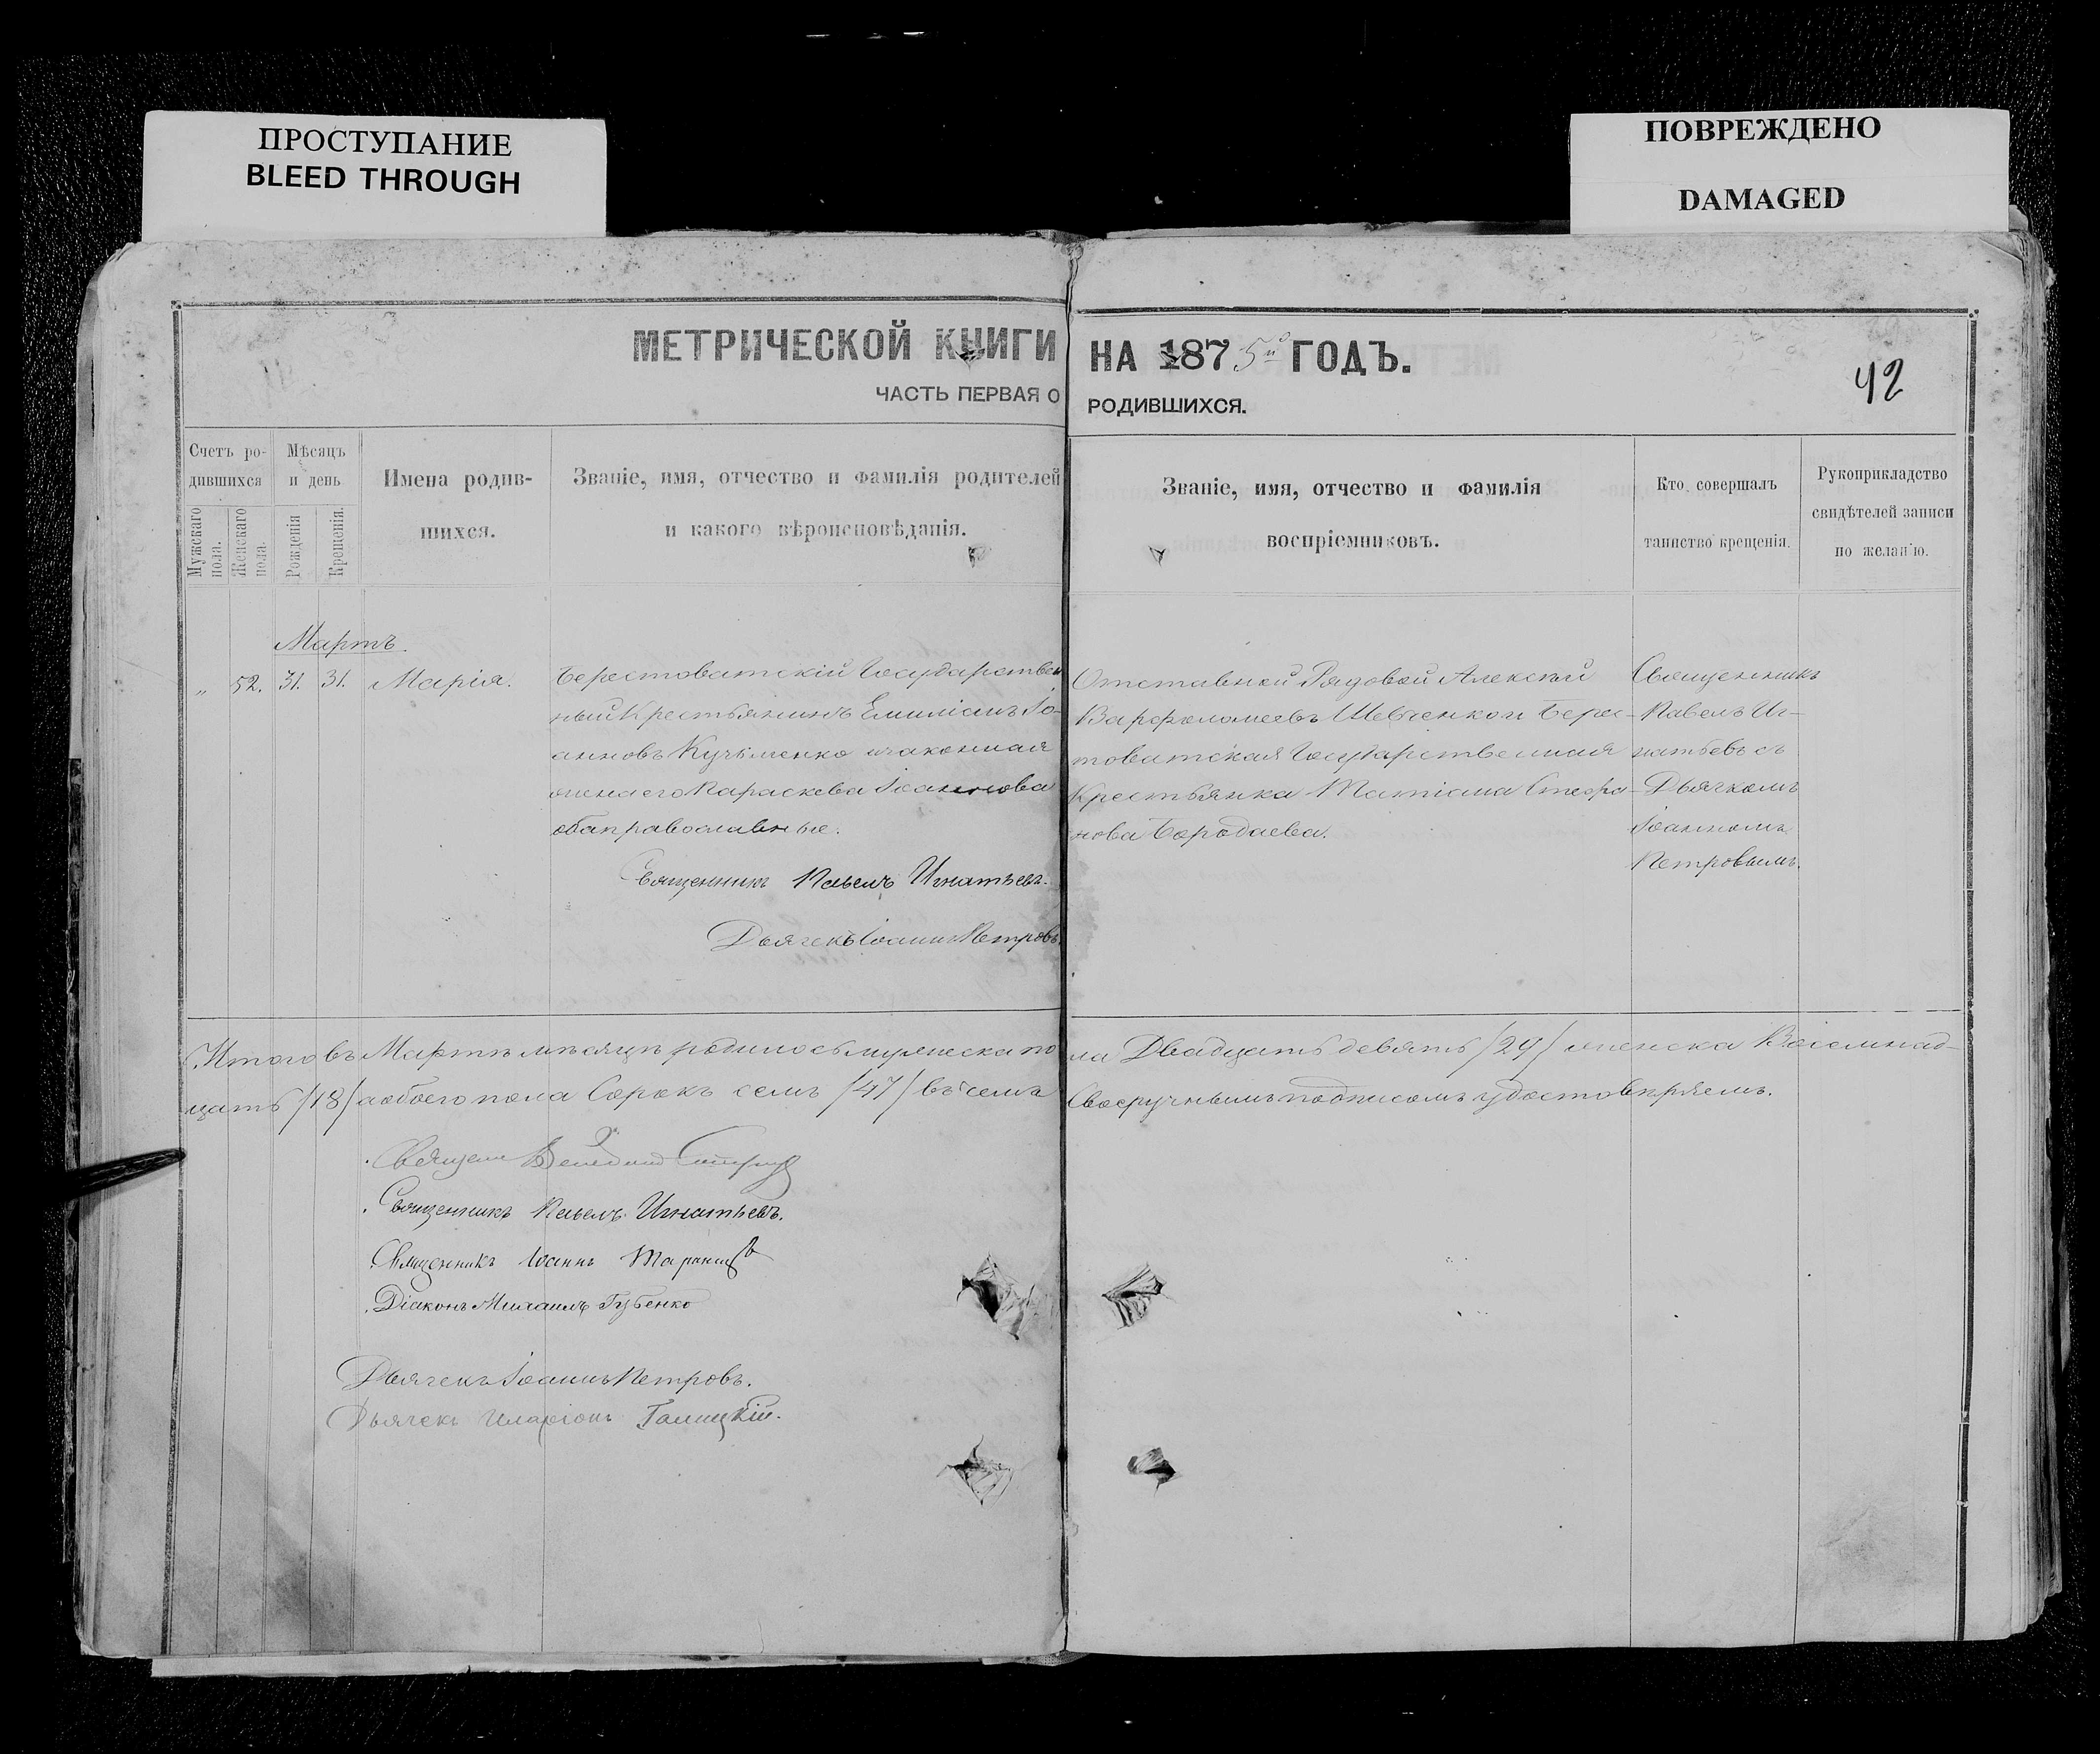 ПРОСТУПАНИЕ
BLEED THROUGH
ПОВРЕЖДЕНО
DAMAGED
МЕТРИЧЕСКОЙ КНИГИ НА 1875й ГОДЪ.
42
ЧАСТЬ ПЕРВАЯ О РОДИВШИХСЯ.
Счетъ ро-
дившихся
Мужскаго пола.
Женскаго пола.
Мѣсяцъ
и день
Рожденія
Крещенія.
Имена родив-
шихся.
Званіе, имя, отчество и фамилія родителей
и какого вѣроисповѣданія.
Званіе, имя, отчество и фамилія
воспріемниковъ.
Кто совершалъ
таинство крещенія.
Рукоприкладство
свидѣтелей записи
по желанію.
Мартъ.
„ 52. 31. 31. Марія.
Берестоватскій Государствен
ный Крестьянинъ Емиліанъ Іо-
анновъ Кузьменко и законная
жена его Параскева Іоаннова
оба православные.
Священникъ Павелъ Игнатьевъ.
Дьячекъ Іоаннъ Петровъ.
Отставной Рядовой Алексѣй
Варфоломеевъ Шевченко и Берес-
товатская Государственная
Крестьянка Татіана Стефа-
нова Бородаева.
Священникъ
Павелъ Иг-
натьевъ съ
Дьячкомъ
Іоанномъ
Петровымъ.
Итого въ Мартѣ мѣсяцѣ родилось мужеска по ла Двадцать девять /29/ женска Восемнад-
цать /18/ а обоего пола Сорокъ семь /47/ въ чемъ Своеручнымъ подписомъ удостовѣряемъ.
Священникъ Павелъ Игнатьевъ.
Священникъ Іоаннъ
Діаконъ Михаилъ Губенко
Дьячекъ Іоаннъ Петровъ.
Дьячекъ Иларіонъ Галицкій.